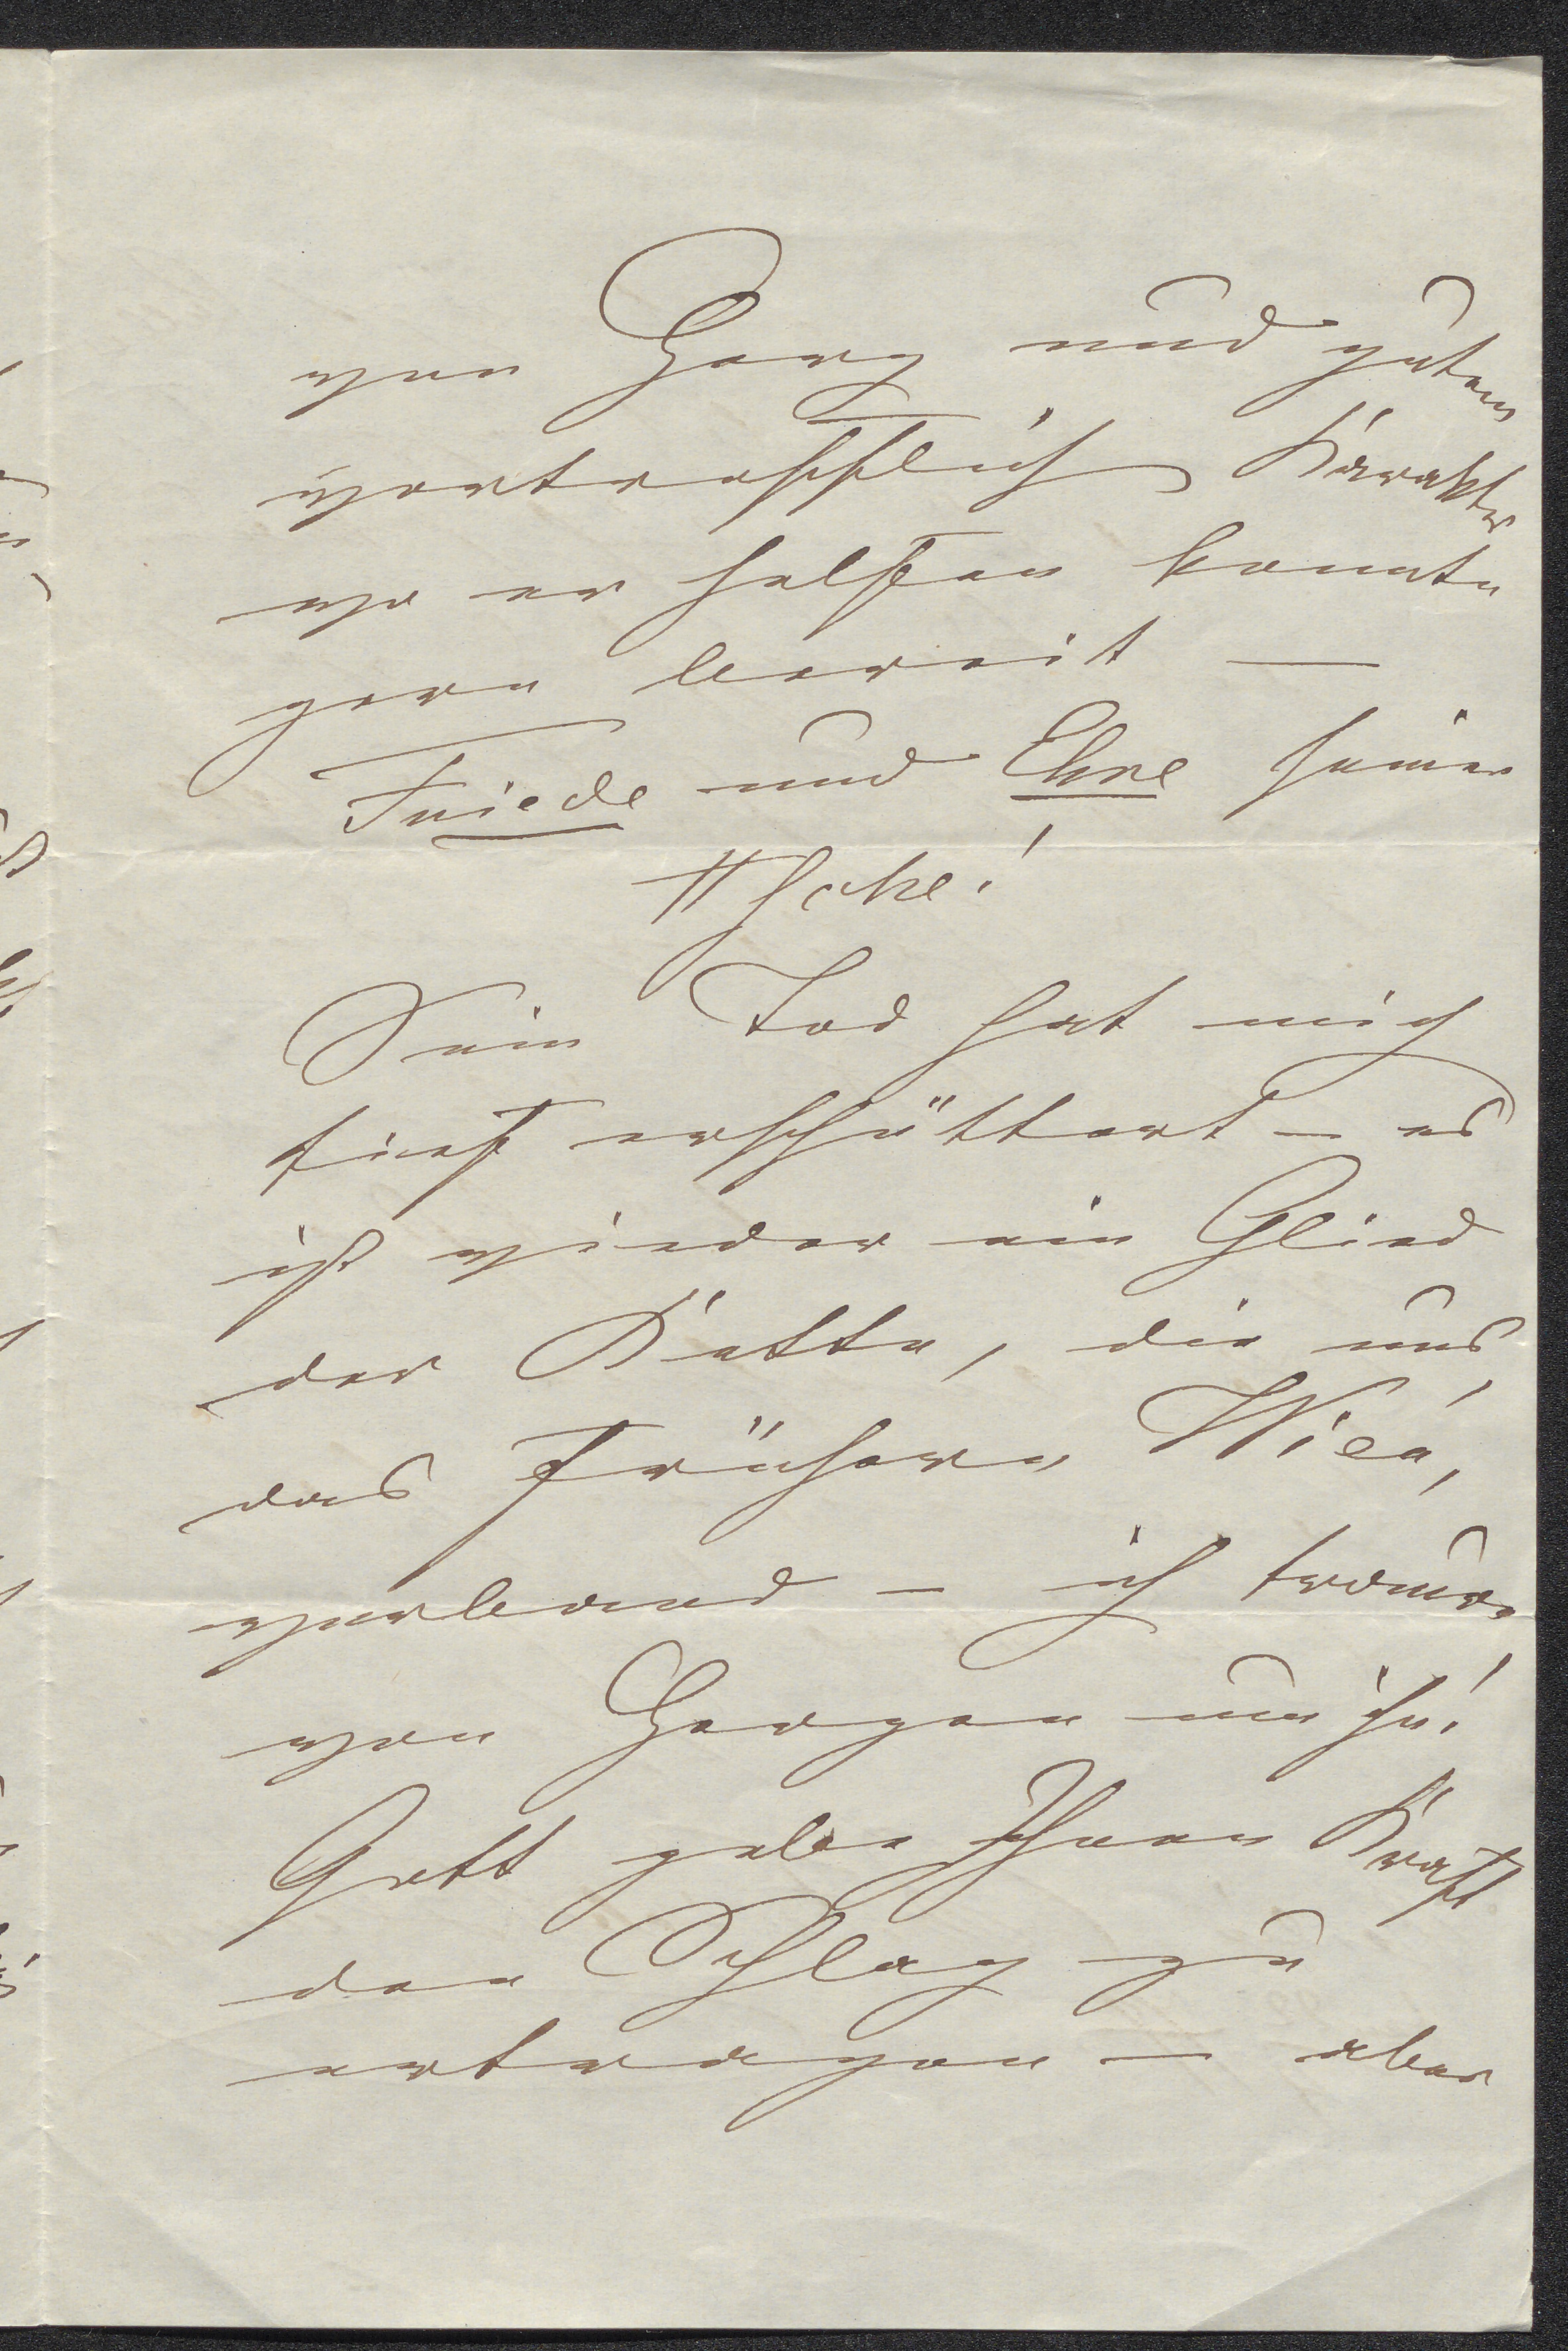 von Herz und gutem
vortrefflich Karakter
wo er helfen konnte
gern bereit —
Friede und Ehre seiner
Asche!
Sein Tod hat mich
tief erschüttert — es
ist wieder ein Glied
der Kette, die uns,
das frühere Wien,
verband — ich traure
von Herzen um ihn!
Gott gebe Ihnen Kraft
den Schlag zu
ertragen — aber